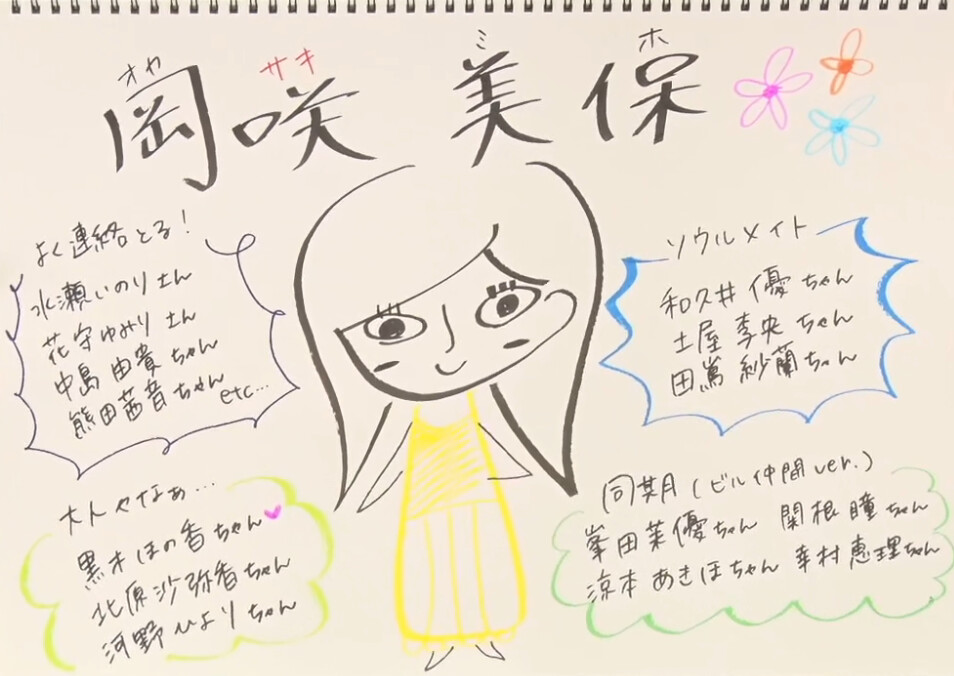 オカ サキ ミ ホ
岡咲 美保
よく連絡とる!
水瀬いのりさん
花守ゆみりさん
中島由貴ちゃん
熊田茜音ちゃん etc...
ソウルメイト
和久井 優ちゃん
土屋 李央ちゃん
田嶌 紗蘭ちゃん
大人やなぁ...
黒木ほの香ちゃん
北原沙弥香ちゃん
河野ひよりちゃん
同期(ビル仲間ver.)
峯田茉優ちゃん 関根瞳ちゃん
涼本あきほちゃん 幸村恵理ちゃん